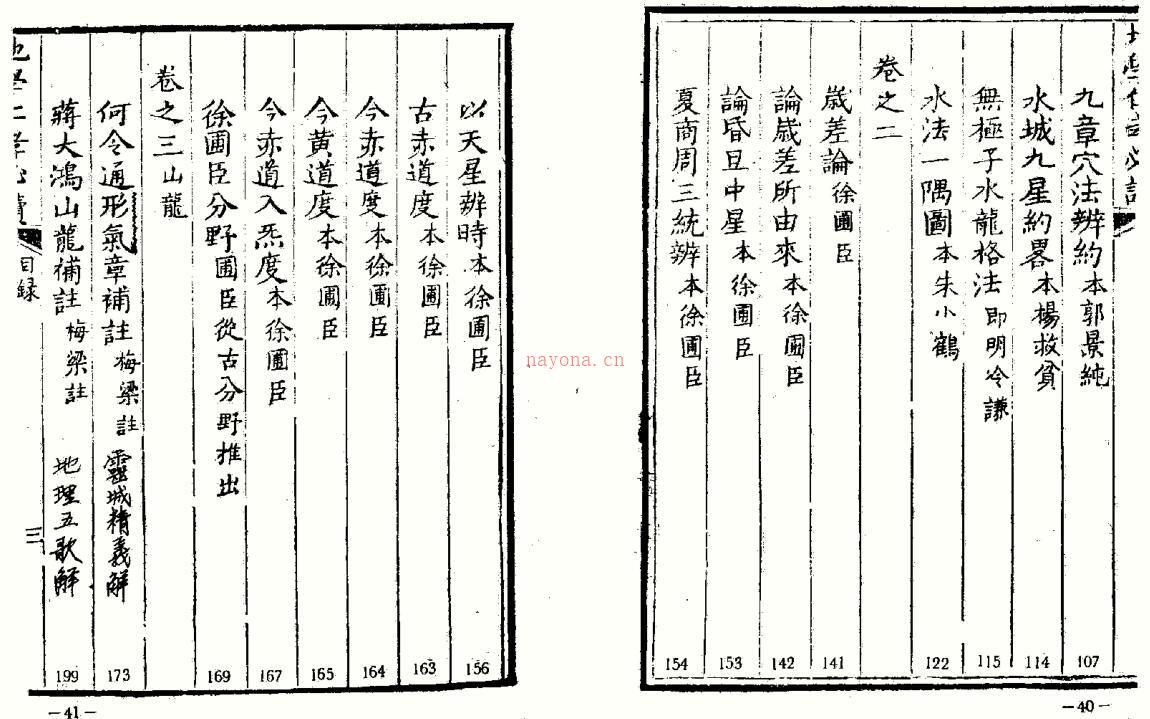 九章穴法辨約本郭景純 107
水城九星約畧本楊救貧 114
無極子水龍格法即明冷謙 115
水法一隅圖本朱小鶴 122
卷之二
歲差論徐圃臣 141
論歲差所由來本徐圃臣 142
論昏旦中星本徐圃臣 153
夏商周三統辨本徐圃臣 154
-40-
以天星辨時本徐圃臣 156
古赤道度本徐圃臣 163
今赤道度本徐圃臣 164
今黄道度本徐圃臣 165
今赤道入炁度本徐圃臣 167
徐圃臣分野圃臣從古分野推出 169
卷之三山龍
何令通形氣章補註梅梁註 靈城精義解 173
蔣大鴻山龍補註梅梁註 地理五歌解 199
目録
三
-41-
nayona.cn